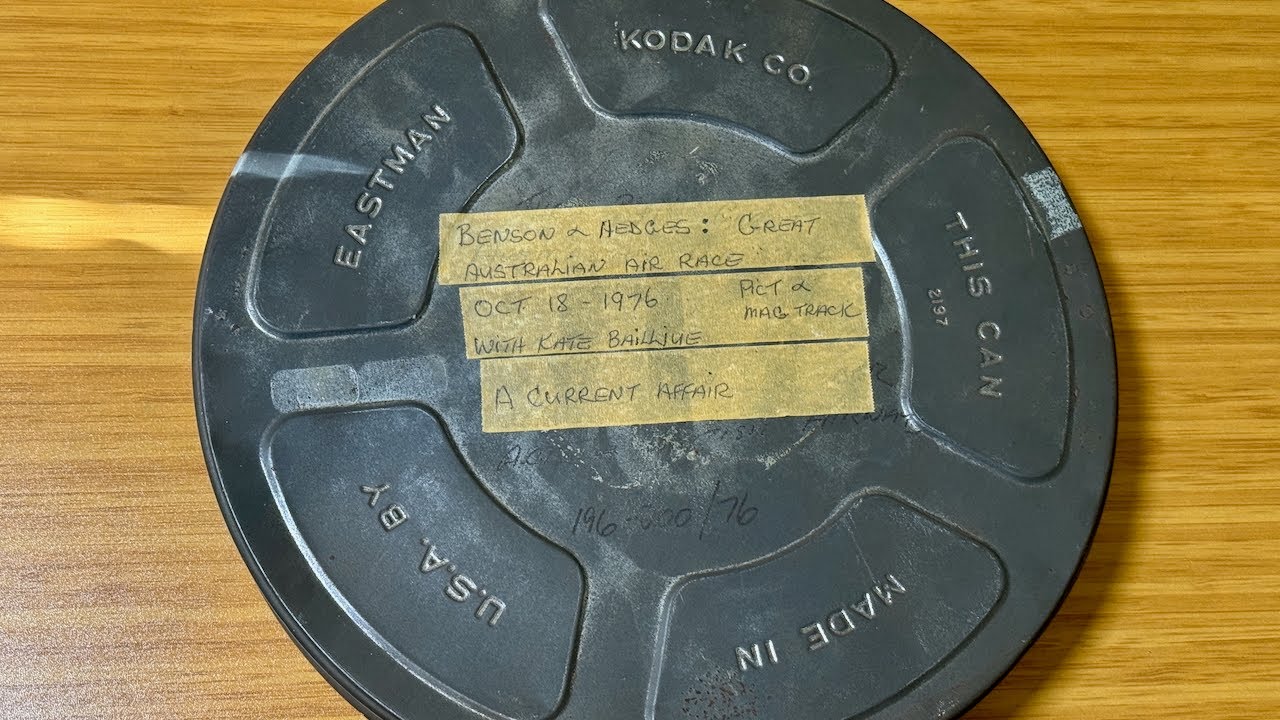 KODAK CO.
EASTMAN
THIS CAN
2197
BENSON & HEDGES: "GREAT
AUSTRALIAN AIR RACE
OCT 18 - 1976
PICT &
MAG TRACK
WITH KATE BAILLIUE
A CURRENT AFFAIR
196-000/76
U.S.A. BY
MADE IN